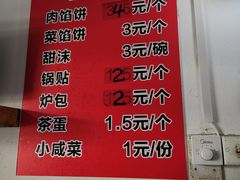 肉馅饼 元/个
菜馅饼 3元/个
甜沫 3元/碗
锅贴 元/个
炉包 元/个
茶蛋 1.5元/个
小咸菜 1元/份
Midea